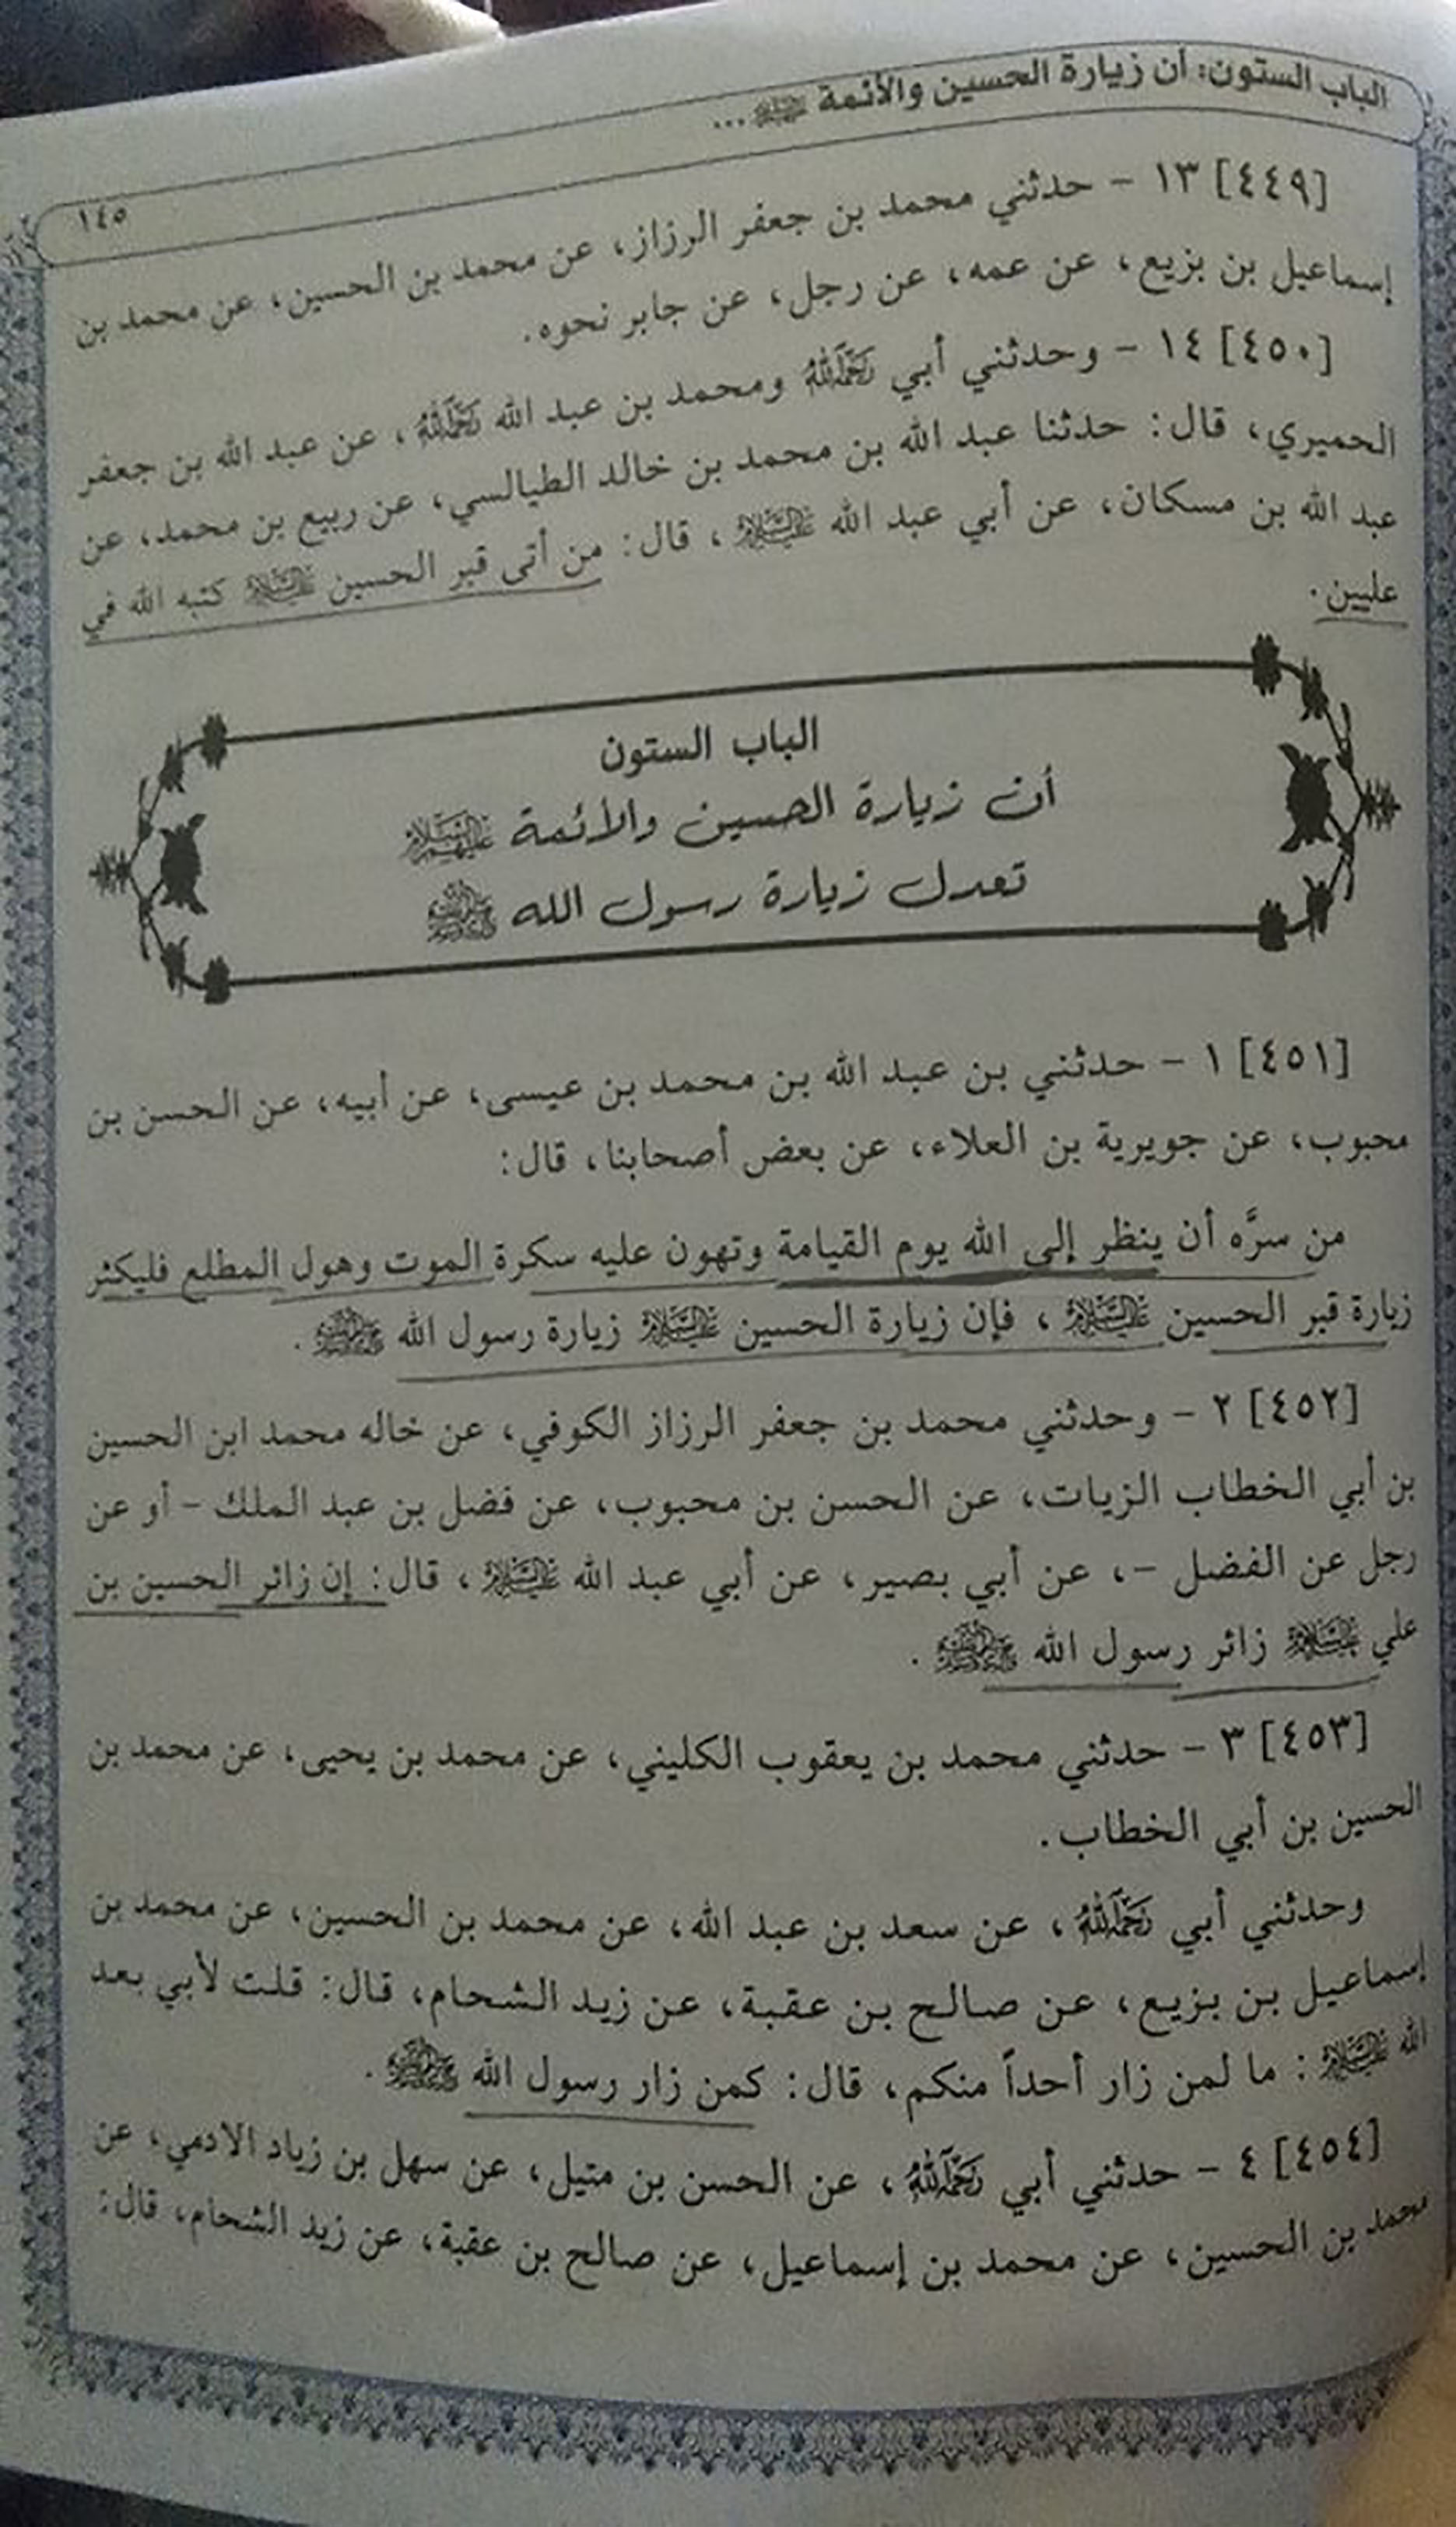 الباب الستون: أن زيارة الحسين والأئمة ﷺ ...
١٤٥
[٤٤٩] ١٣ - حدثني محمد بن جعفر الرزاز، عن محمد بن الحسين، عن محمد بن
إسماعيل بن بزيع، عن عمه، عن رجل، عن جابر نحوه.
[٤٥٠] ١٤ - وحدثني أبي رحمه الله ومحمد بن عبد الله رحمه الله، عن عبد الله بن جعفر
الحميري، قال: حدثنا عبد الله بن محمد بن خالد الطيالسي، عن ربيع بن محمد، عن
عبد الله بن مسكان، عن أبي عبد الله عليه السلام، قال: من أتى قبر الحسين عليه السلام كتبه الله في
عليين.
الباب الستون
أن زيارة الحسين والأئمة عليهم السلام
تعدل زيارة رسول الله ﷺ
[٤٥١] ١ - حدثني بن عبد الله بن محمد بن عيسى، عن أبيه، عن الحسن بن
محبوب، عن جويرية بن العلاء، عن بعض أصحابنا، قال:
من سرَّه أن ينظر إلى الله يوم القيامة وتهون عليه سكرة الموت وهول المطلع فليكثر
زيارة قبر الحسين عليه السلام، فإن زيارة الحسين عليه السلام زيارة رسول الله ﷺ.
[٤٥٢] ٢ - وحدثني محمد بن جعفر الرزاز الكوفي، عن خاله محمد ابن الحسين
بن أبي الخطاب الزيات، عن الحسن بن محبوب، عن فضل بن عبد الملك - أو عن
رجل عن الفضل -، عن أبي بصير، عن أبي عبد الله عليه السلام، قال: إن زائر الحسين بن
علي عليه السلام زائر رسول الله ﷺ.
[٤٥٣] ٣ - حدثني محمد بن يعقوب الكليني، عن محمد بن يحيى، عن محمد بن
الحسين بن أبي الخطاب.
وحدثني أبي رحمه الله، عن سعد بن عبد الله، عن محمد بن الحسين، عن محمد بن
إسماعيل بن بزيع، عن صالح بن عقبة، عن زيد الشحام، قال: قلت لأبي بعد
الله عليه السلام: ما لمن زار أحداً منكم، قال: كمن زار رسول الله ﷺ.
[٤٥٤] ٤ - حدثني أبي رحمه الله، عن الحسن بن متيل، عن سهل بن زياد الادمي، عن
محمد بن الحسين، عن محمد بن إسماعيل، عن صالح بن عقبة، عن زيد الشحام، قال: